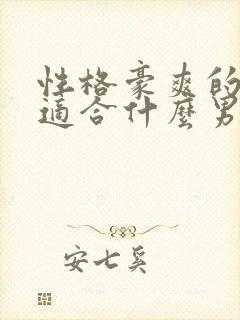 性格豪爽的
適合什麼男
安七奚